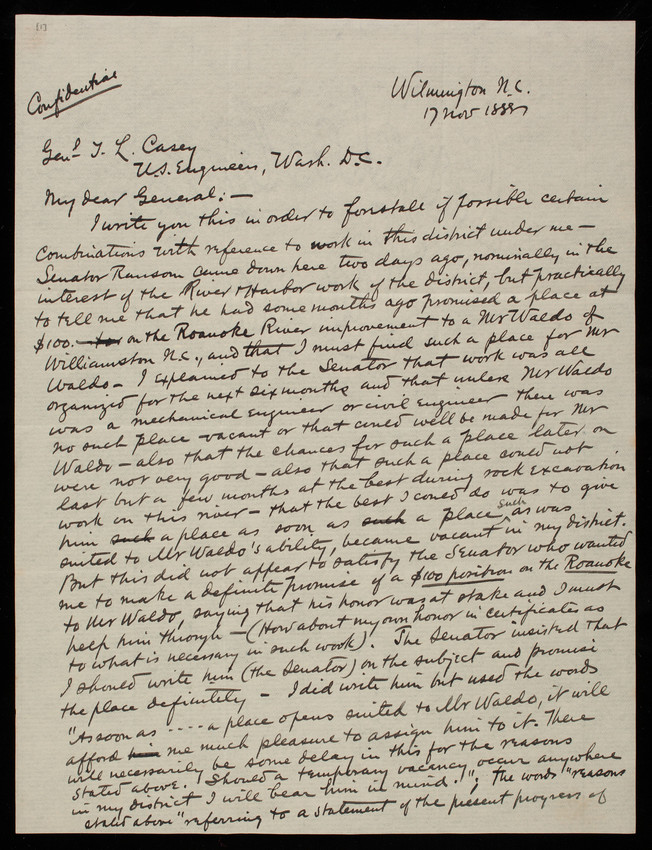 [1]
Confidential
Wilmington N.C.
17 Nov 1888
Genl T. L. Casey
U.S. Engineers, Wash. D.C.
My dear General:—
I write you this in order to forestall if possible certain
combinations with reference to work in this district under me—
Senator Ransom came down here two days ago, nominally in the
interest of the River & Harbor work of the district, but practically
to tell me that he had some months ago promised a place at
$100. on the Roanoke River improvement to a Mr Waldo of
Williamston N.C., and that I must find such a place for Mr
Waldo— I explained to the Senator that work was all
organized for the next six months and that unless Mr Waldo
was a mechanical engineer or civil engineer there was
no such place vacant or that could well be made for Mr
Waldo— also that the chances for such a place later on
were not very good— also that such a place could not
last but a few months at the best during rock excavation
work on this river— that the best I could do was to give
him such a place as soon as such a place such as was
suited to Mr Waldo's ability, became vacant in my district.
But this did not appear to satisfy the Senator who wanted
me to make a definite promise of a $100 position on the Roanoke
to Mr Waldo, saying that his honor was at stake and I must
help him through— (How about my own honor in certificates as
to what is necessary in such work). The Senator insisted that
I should write him (the Senator) on the subject and promise
the place definitely— I did write him but used the words
"As soon as .... a place opens suited to Mr Waldo, it will
afford him me much pleasure to assign him to it. There
will necessarily be some delay in this for the reasons
stated above. Should a temporary vacancy occur anywhere
in my district I will bear him in mind."; The words "reasons
stated above" referring to a statement of the present progress of